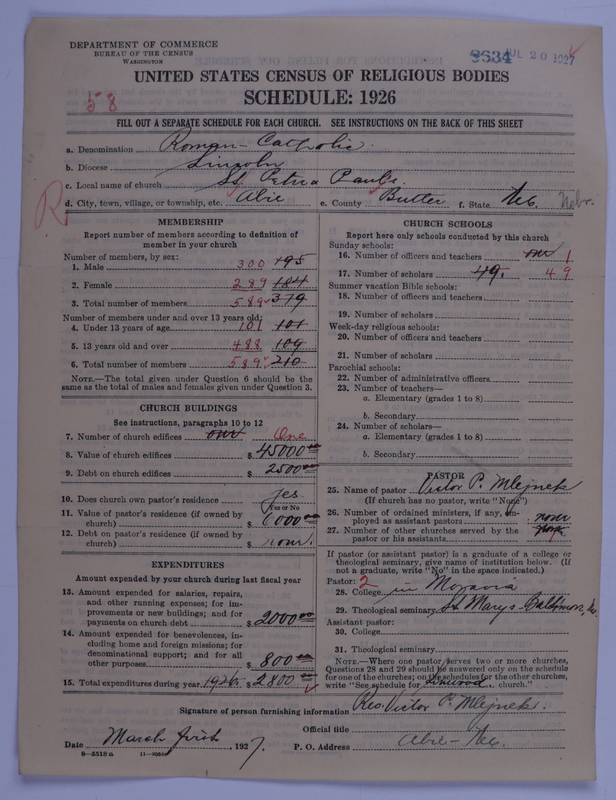 DEPARTMENT OF COMMERCE
BUREAU OF THE CENSUS
WASHINGTON
8634 JUL 20 1927
UNITED STATES CENSUS OF RELIGIOUS BODIES
58
SCHEDULE: 1926
FILL OUT A SEPARATE SCHEDULE FOR EACH CHURCH. SEE INSTRUCTIONS ON THE BACK OF THIS SHEET
a. Denomination Roman-Catholic
b. Diocese Lincoln
c. Local name of church SS Petri a Paul's.
d. City, town, village, or township, etc. Abie e. County Butler f. State Neb. Nebr.
R
MEMBERSHIP
Report number of members according to definition of
member in your church
Number of members, by sex:
1. Male 300 195
2. Female 289 184
3. Total number of members 589 379
Number of members under and over 13 years old:
4. Under 13 years of age 101 101
5. 13 years old and over 488 109
6. Total number of members 589 210
NOTE.—The total given under Question 6 should be
the same as the total of males and females given under Question 3.
CHURCH BUILDINGS
See instructions, paragraphs 10 to 12
7. Number of church edifices one One
8. Value of church edifices $ 45000 00
9. Debt on church edifices $ 2500 00
10. Does church own pastor's residence yes
Yes or No
11. Value of pastor's residence (if owned by
church) $ 6000 00
12. Debt on pastor's residence (if owned by
church) $ none.
EXPENDITURES
Amount expended by your church during last fiscal year
13. Amount expended for salaries, repairs,
and other running expenses; for im-
provements or new buildings; and for
payments on church debt $ 2000 00
14. Amount expended for benevolences, in-
cluding home and foreign missions; for
denominational support; and for all
other purposes $ 800 00
15. Total expenditures during year 1926 $ 2800 00
CHURCH SCHOOLS
Report here only schools conducted by this church
Sunday schools:
16. Number of officers and teachers one 1
17. Number of scholars 49. 49
Summer vacation Bible schools:
18. Number of officers and teachers
19. Number of scholars
Week-day religious schools:
20. Number of officers and teachers
21. Number of scholars
Parochial schools:
22. Number of administrative officers
23. Number of teachers—
a. Elementary (grades 1 to 8)
b. Secondary
24. Number of scholars—
a. Elementary (grades 1 to 8)
b. Secondary
PASTOR
25. Name of pastor Victor P. Mlejnek
(If church has no pastor, write "None")
26. Number of ordained ministers, if any, em-
ployed as assistant pastors none
27. Number of other churches served by the
pastor or his assistants
If pastor (or assistant pastor) is a graduate of a college or
theological seminary, give name of institution below. (If
not a graduate, write "No" in the space indicated.)
Pastor: 2
28. College in Moravia
29. Theological seminary St Marys Baltimore,
Assistant pastor:
30. College
31. Theological seminary
NOTE.—Where one pastor serves two or more churches,
Questions 28 and 29 should be answered only on the schedule
for one of the churches; on the schedules for the other churches,
write "See schedule for Linwood church."
Signature of person furnishing information Rev. Victor P. Mlejnek.
Official title
Date March first, 1927. P. O. Address Abie - Neb.
8—5518 a